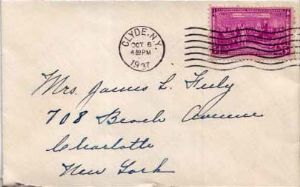 CLYDE, N.Y.
OCT 6
4 PM
1937
Mrs. James L. Feely
708 Beach Avenue
Charlotte
New York